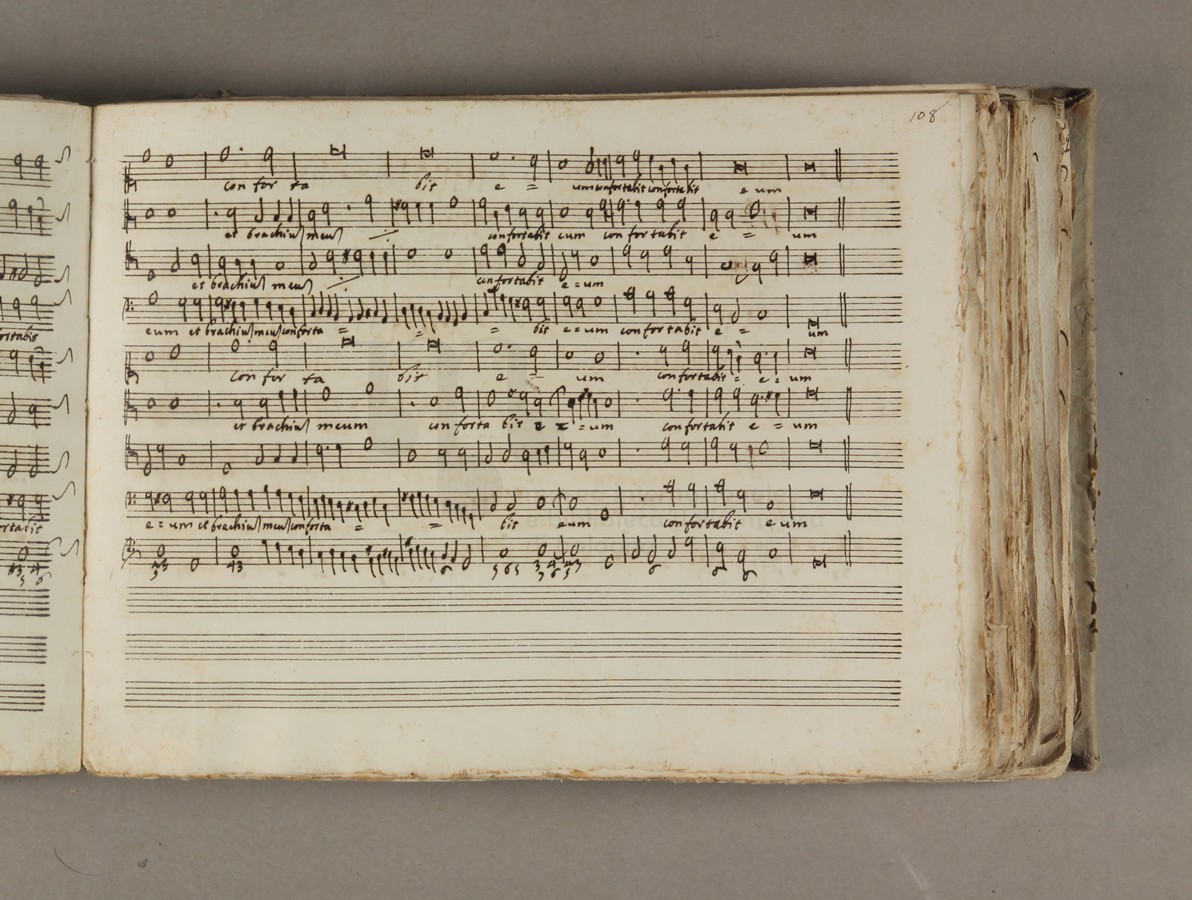 108
con for ta bis e = um confortabis confortabis e um
et brachiu meu confortabis eum confortabis e = um
et brachiu meu confortabis e = um
eum et brachiu meu conforta = = bis e = um confortabis e = um
rtabis
con for ta bis e = um confortabis = e = um
et brachiu meum conforta bis e = = um confortabis e = um
e = um et brachiu meu conforta = = bis eum confortabis e um
rtabis
43